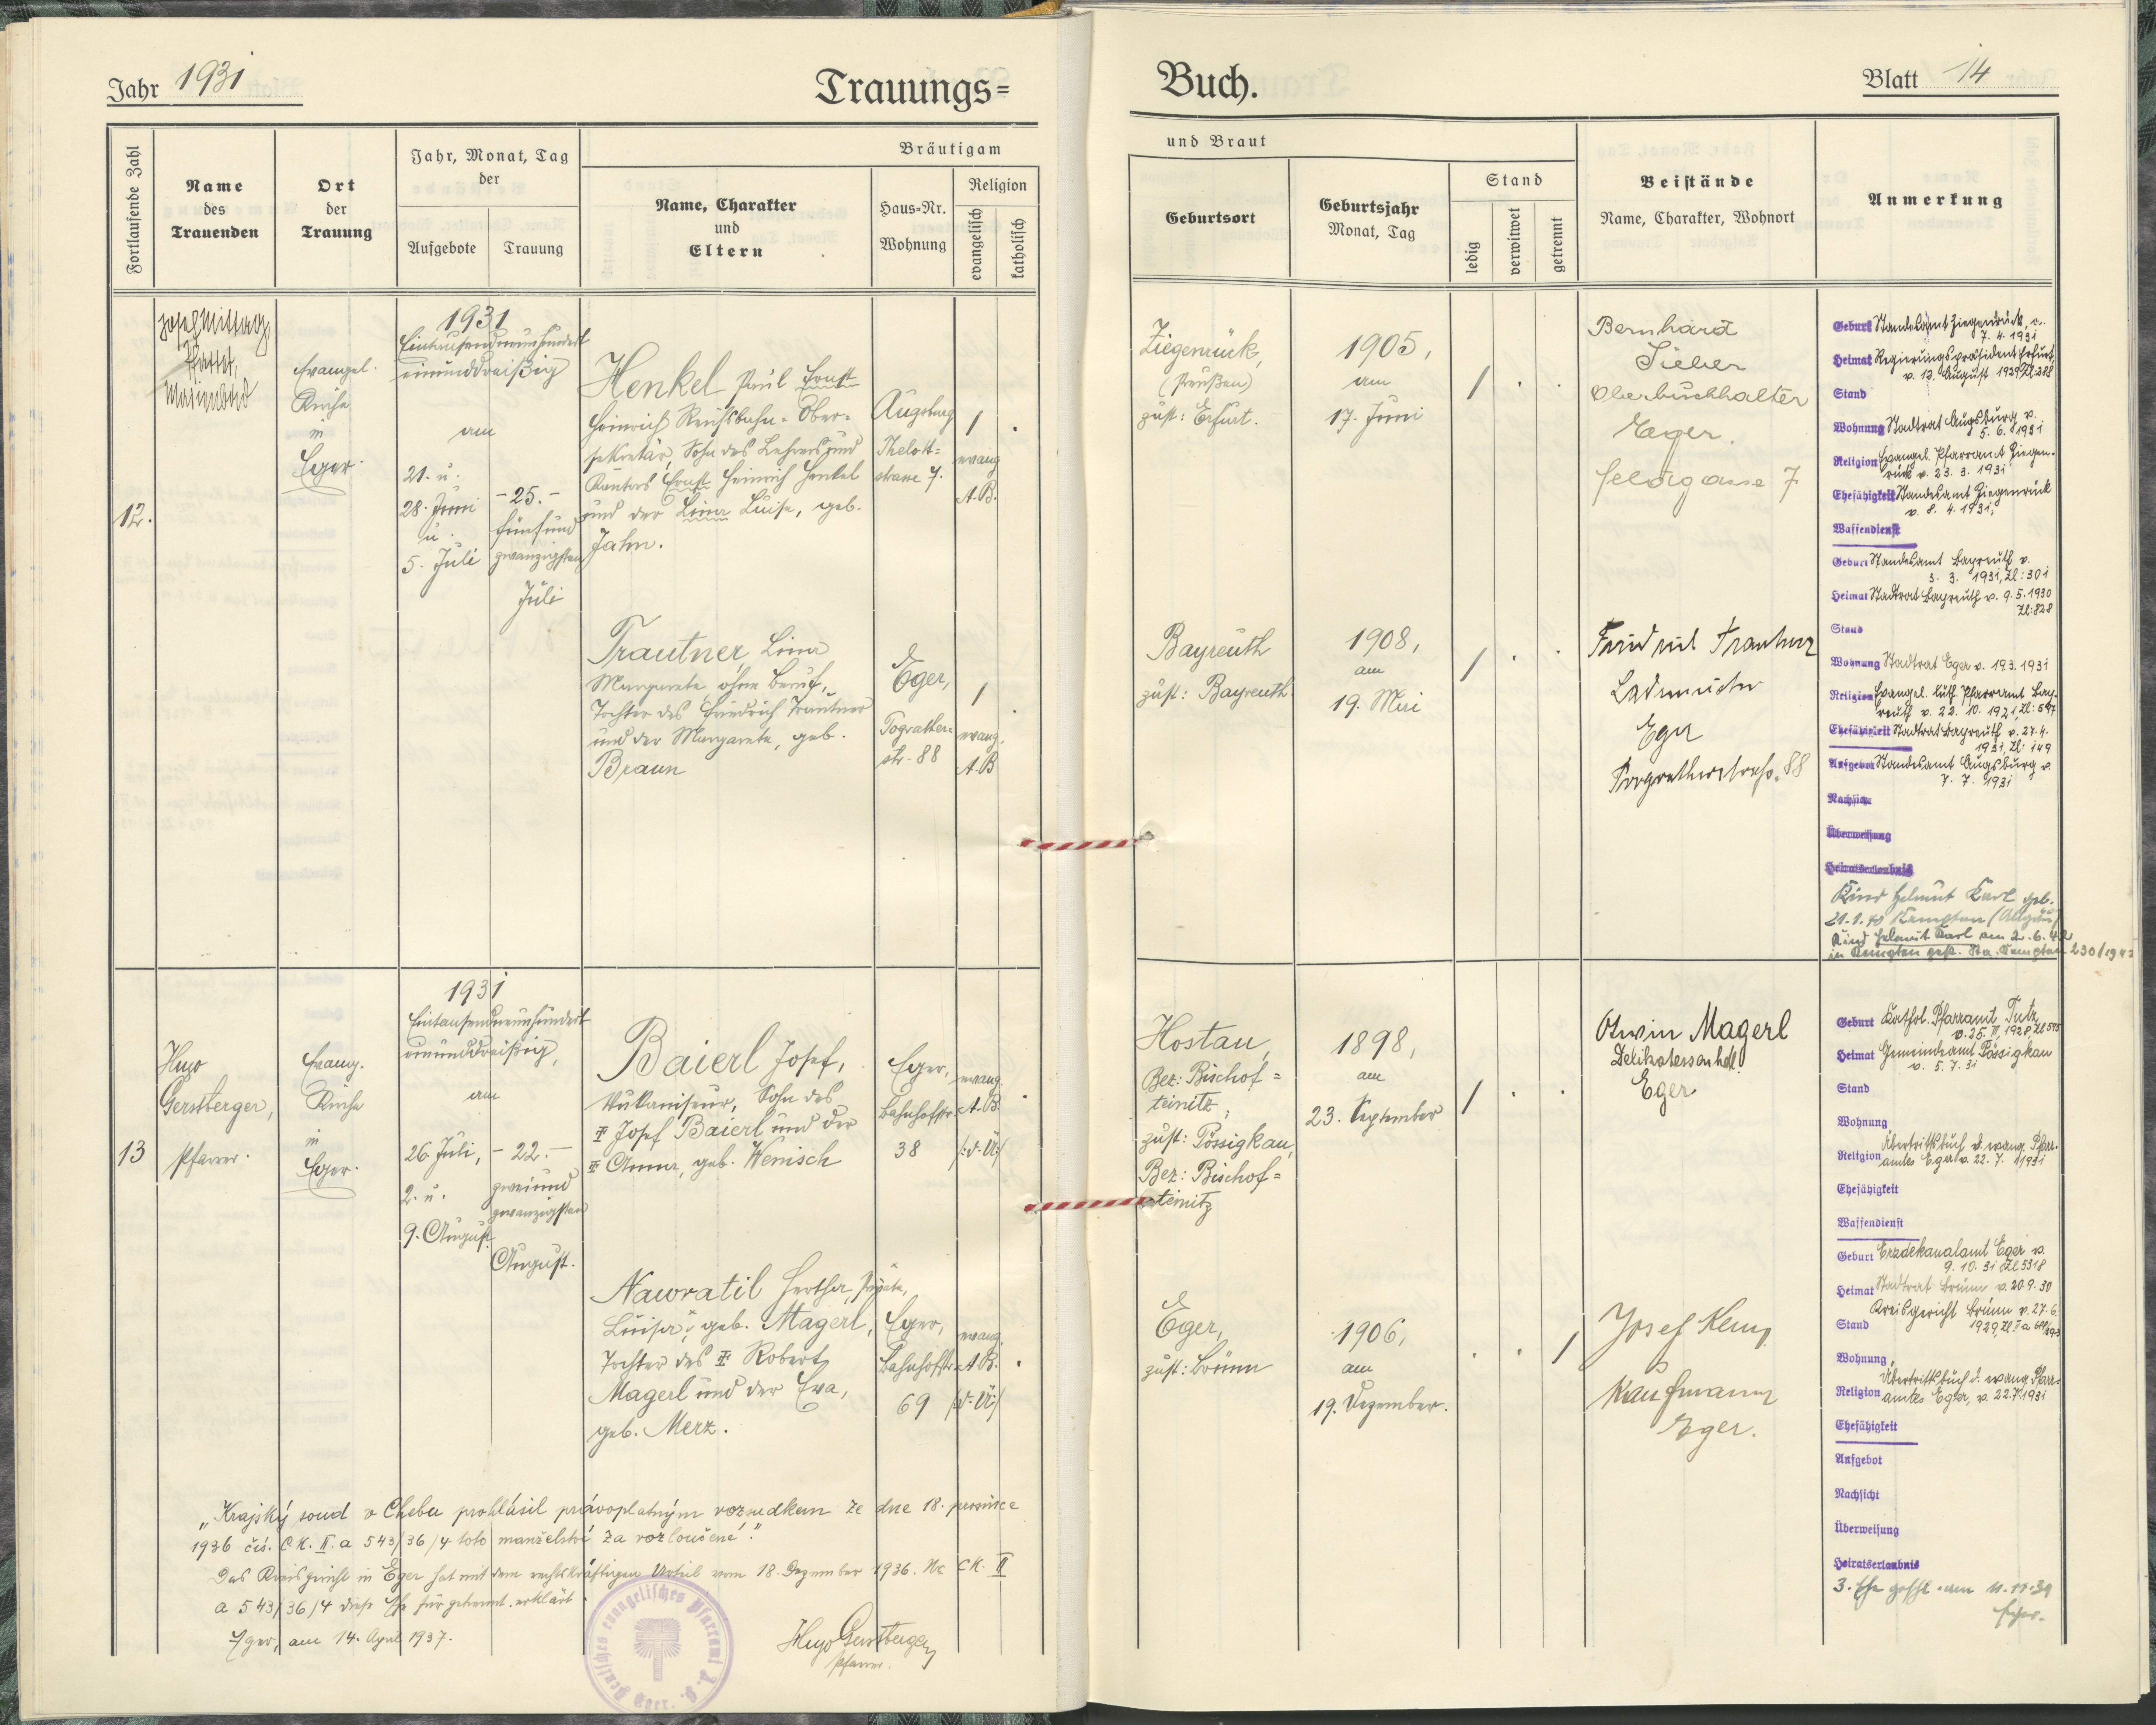 Jahr 1931
Trauungs=
Buch.
Blatt 14
Fortlaufende Zahl
Name
des
Trauenden
Ort
der
Trauung
Jahr, Monat, Tag
der
Aufgebote
Trauung
Bräutigam
Name, Charakter
und
Eltern
Haus=Nr.
Wohnung
Religion
evangelisch
katholisch
und Braut
Geburtsort
Geburtsjahr
Monat, Tag
Stand
ledig
verwitwet
getrennt
Beistände
Name, Charakter, Wohnort
Anmerkung
12.
Josef Mittag,
Pfarrer,
Evangel.
Kirche
in
Eger.
1931
Eintausendneunhundert
einunddreißig
am
21. u.
28. Juni
u.
5. Juli
- 25. -
fünfund
zwanzigsten
Juli
Henkel Paul Ernst
Heinrich Reichsbahn-Ober-
sekretär, Sohn des Lehrers und
Kantors Ernst Heinrich Henkel
und der Lina Luise, geb.
Jahn.
Augsburg
Thelott-
strasse 7.
evang.
A.B.
Ziegenrück,
(Preußen)
zust: Erfurt.
1905,
am
17. Juni
Bernhard
Sieber
Oberbuchhalter
Eger.
Feldgasse 7
Geburt Standesamt Ziegenrück, v.
7. 4. 1931
Heimat Regierungspräsident Erfurt,
v. 13. August 1929 Zl 288
Stand
Wohnung Stadtrat Augsburg v.
5. 6. 1931
Religion Evangel. Pfarramt Ziegen-
rück v. 23. 3. 1931
Ehefähigkeit Standesamt Ziegenrück
v. 8. 4. 1931,
Waffendienst
Trautner, Lina
Margarete, ohne Beruf,
Tochter des Friedrich Trautner
und der Margarete, geb.
Braun
Eger,
Pograther-
str. 88
evang.
A.B
Bayreuth
zust: Bayreuth.
1908,
am
19. Mai
Friedrich Trautner
Lademeister
Eger
Pogratherstraße 88
Geburt Standesamt Bayreuth v.
3. 3. 1931, Zl: 301
Heimat Stadtrat Bayreuth v. 9. 5. 1930
Zl: 828
Stand
Wohnung Stadtrat Eger v. 19.3. 1931
Religion Evangel. luth. Pfarramt Bay-
reuth v. 22. 10. 1921, Zl: 547
Ehefähigkeit Stadtrat Bayreuth v. 27. 4.
1931, Zl: 149
Aufgebot Standesamt Augsburg v.
7. 7. 1931
Nachsicht
Überweisung
Heiratserlaubnis
Kind Helmut Karl geb.
21.1.40 Kempten (Allgäu)
Kind Helmut Karl am 2.6.42
in Kempten gest. Sta. Kempten 230/1942
13
Hugo
Gerstberger,
Pfarrer.
Evang.
Kirche
in
Eger.
1931
Eintausendneunhundert
einunddreißig,
am
26. Juli,
2. u.
9. August
- 22. -
zweiund
zwanzigsten
August.
Baierl Josef,
Vulkaniseur, Sohn des
Josef Baierl und der
Anna, geb. Wenisch
Eger,
Bahnhofstr.
38
evang.
A.B.
Hostau,
Bez: Bischof=
teinitz,
zust: Pössigkau,
Bez: Bischof=
teinitz
1898,
am
23. September
Otwin Magerl
Delikatessenhdl.
Eger
Geburt Kathol. Pfarramt Tutz
Heimat Gemeindeamt Pössigkau
v. 5. 7. 31
Stand
Wohnung
Religion Übertrittsbuch d. evang. Pfarr-
amtes Eger v. 22. 7. 1931
Ehefähigkeit
Waffendienst
Nawratil Hertha,
Luisa, geb. Magerl,
Tochter des Robert
Magerl und der Eva,
geb. Merz.
Eger,
Bahnhofstr.
69
evang.
A.B.
Eger,
zust: Brünn
1906,
am
19. Dezember.
Josef
Kaufmann
Eger.
Geburt Erzdekanalamt Eger v.
9. 10. 31 Zl 5318
Heimat Stadtrat Brünn v. 20.9.30
Kreisgericht Brünn v. 27. 6.
Stand
Wohnung
Religion Übertrittsbuch d. evang. Pfarr-
amtes Eger, v. 22.7.1931
Ehefähigkeit
Aufgebot
Nachsicht
Überweisung
Heiratserlaubnis
3. Ehe geschl. am 11.11.39
Eger.
„Krajský soud v Chebu prohlásil právoplatným rozsudkem ze dne 18. prosince
1936 čís. CK. II. a 543/36/4 toto manželství za rozloučené."
Das Kreisgericht in Eger hat mit dem rechtskräftigen Urteil vom 18. Dezember 1936. Nr CK. II
a 543/36/4 diese Ehe für getrennt erklärt.
Eger, am 14. April 1937.
Hugo Gerstberger
Pfarrer.
Deutsches evangelisches Pfarramt A. B.